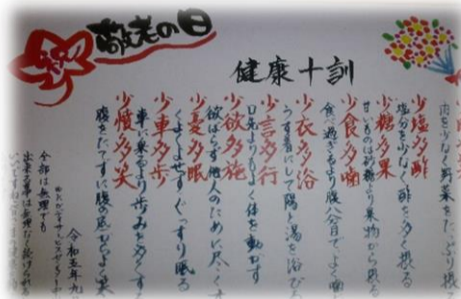 敬老の日
健康十訓
肉を少なく野菜をたっぷり摂る
少塩多酢
塩分を少なく酢を多く摂る
少糖多果
甘いものは砂糖より果物から摂る
少食多噛
食べ過ぎるより腹八分目でよく噛
少衣多浴
うす着にして陽と湯を浴びる
少言多行
口先よりもよく体を動かす
少欲多施
欲ばらず他人のために尽くす
少憂多眠
くよくよせずぐっすり眠る
少車多歩
車に乗るより歩みを多くする
少憤多笑
腹をたてずに腹の底からよく笑
全部は無理でも
令和五年九